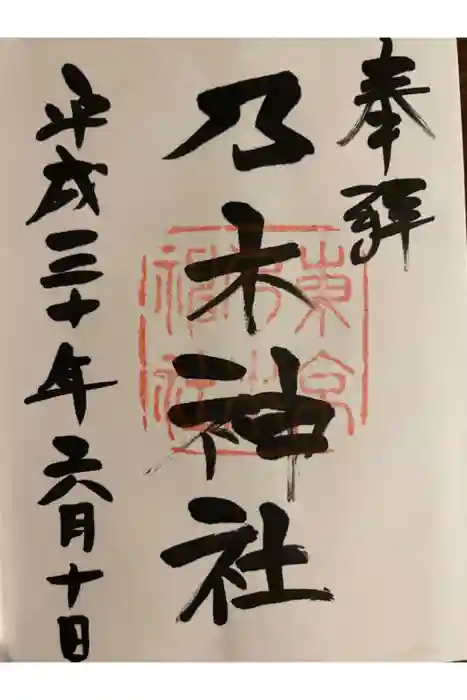 奉拝
東京乃木神社
乃木神社
平成三十年六月十日